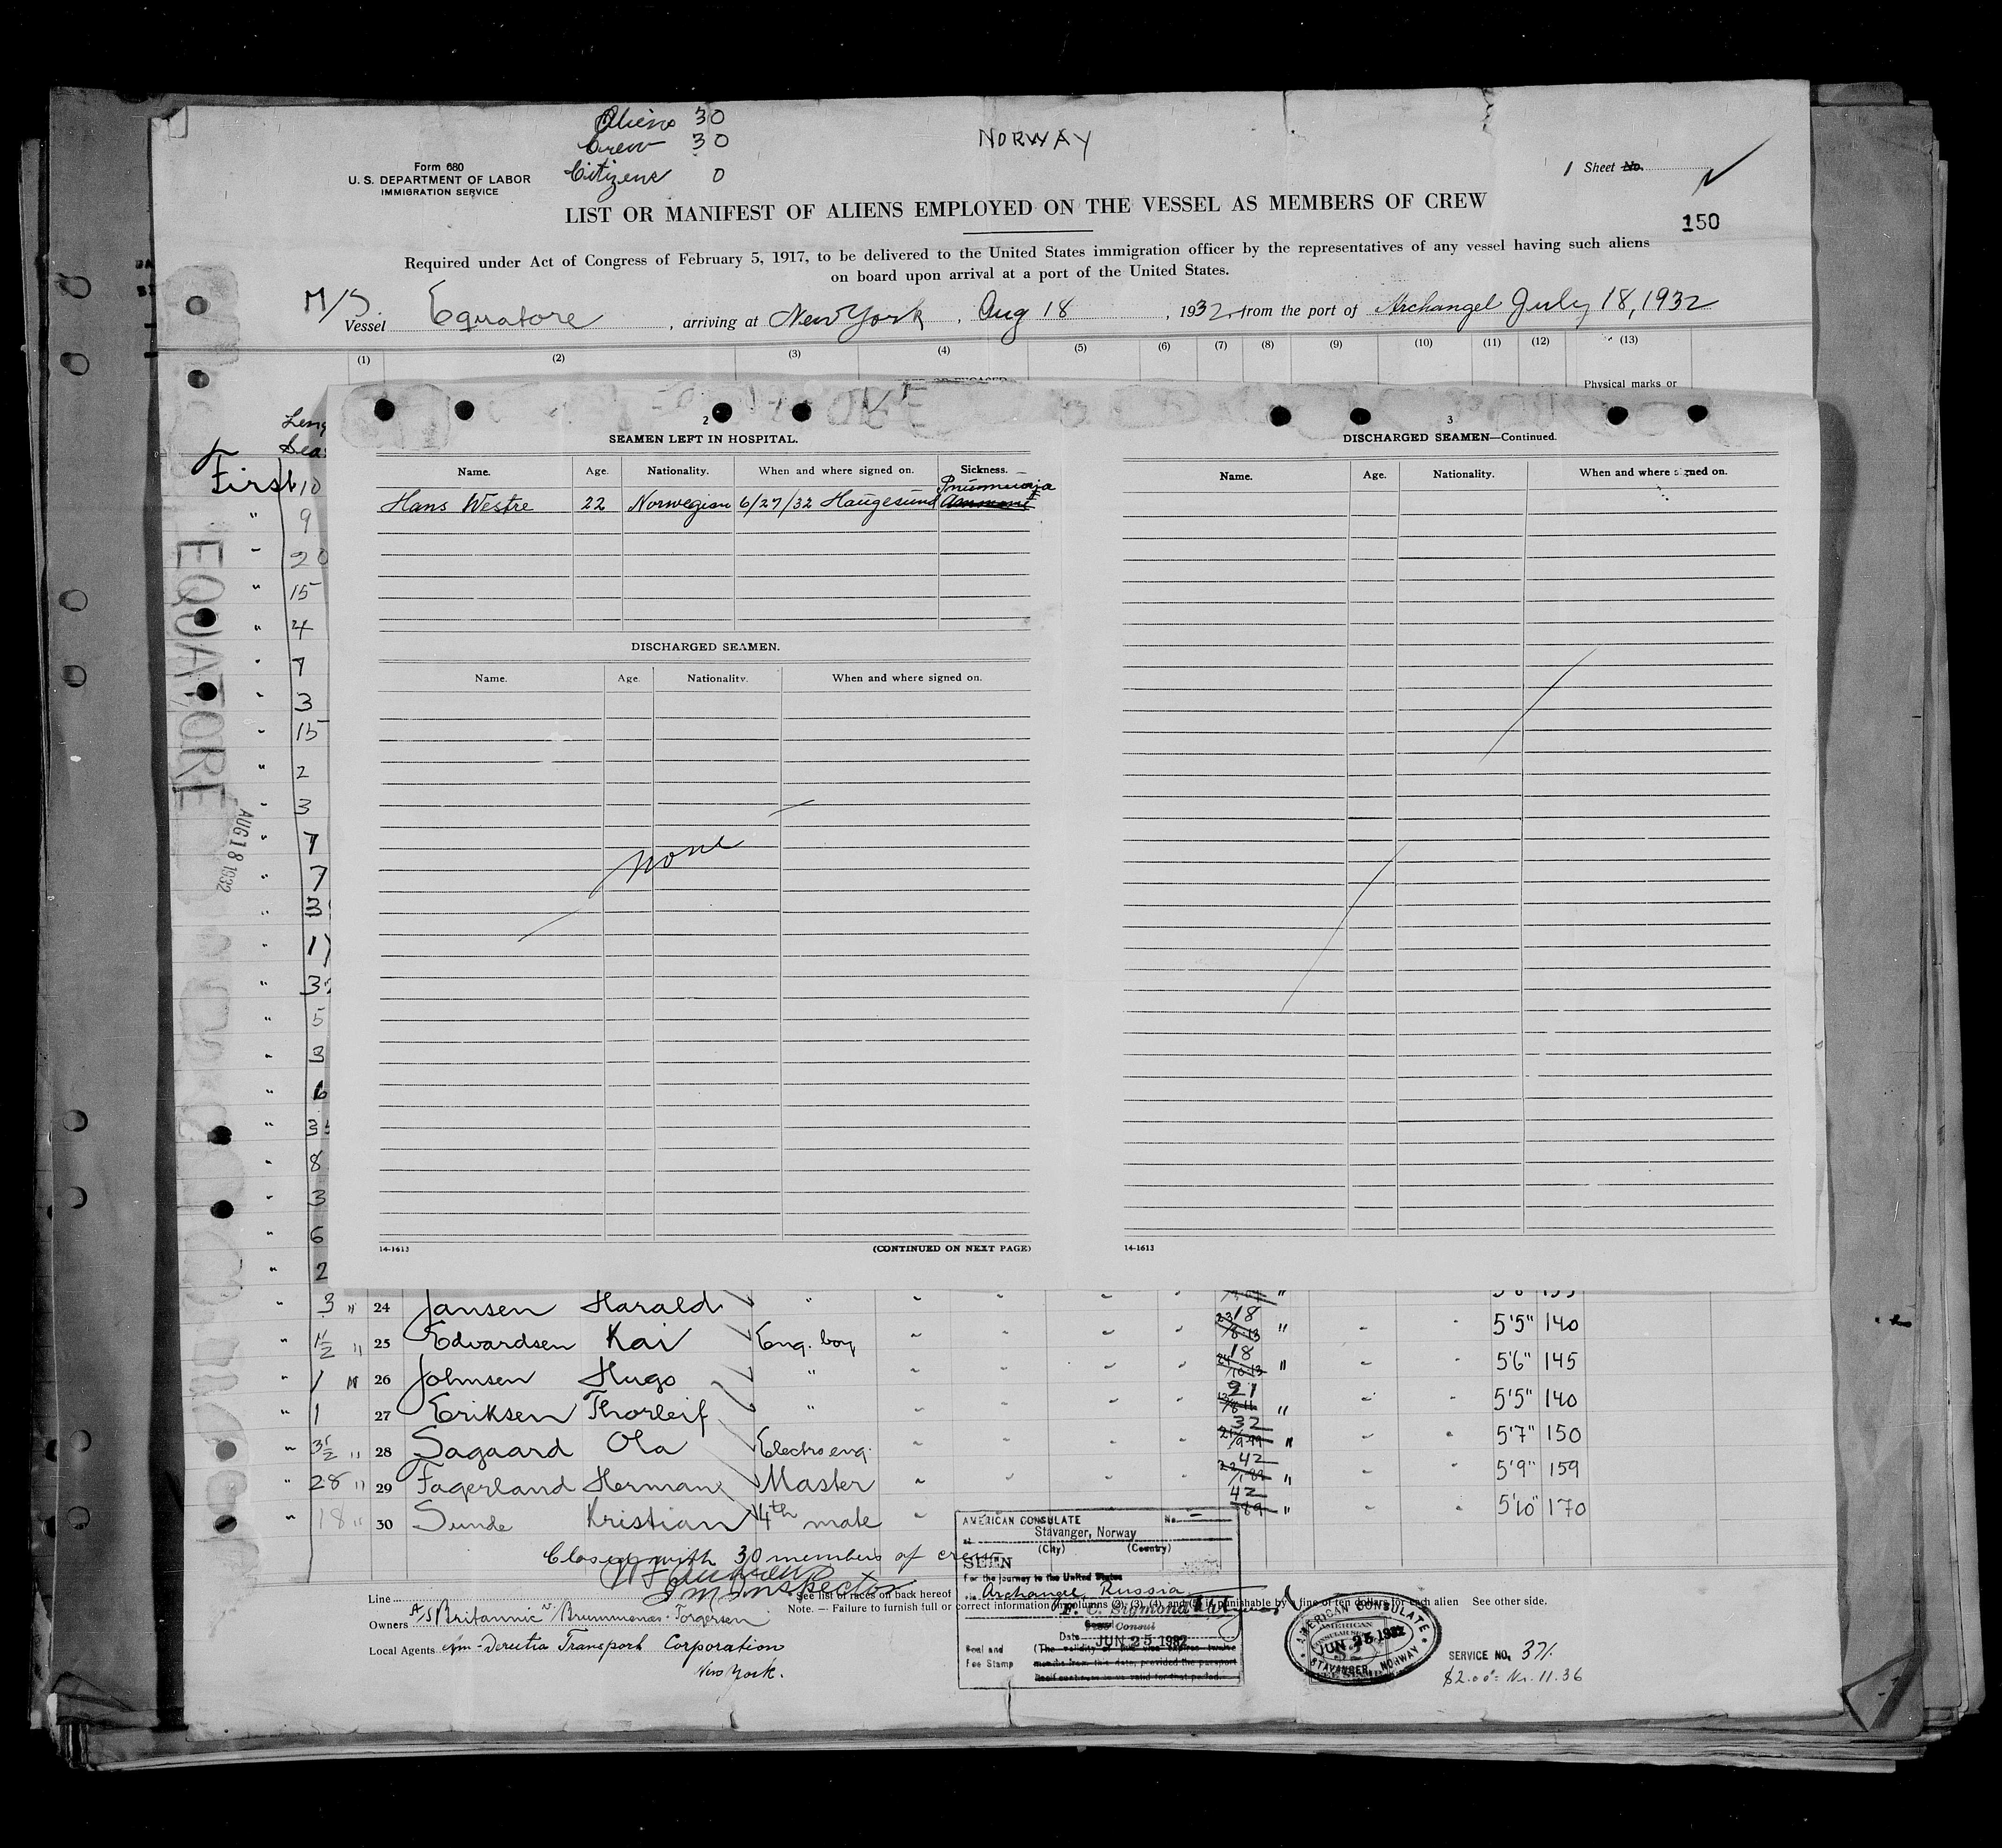 Aliens 30
Crew 30
Citizens 0
NORWAY
Form 680
U. S. DEPARTMENT OF LABOR
IMMIGRATION SERVICE
1 Sheet No.
LIST OR MANIFEST OF ALIENS EMPLOYED ON THE VESSEL AS MEMBERS OF CREW
150
Required under Act of Congress of February 5, 1917, to be delivered to the United States immigration officer by the representatives of any vessel having such aliens
on board upon arrival at a port of the United States.
M/S Vessel Equatore, arriving at New York, Aug 18, 1932, from the port of Archangel July 18, 1932
(1) (2) (3) (4) (5) (6) (7) (8) (9) (10) (11) (12) (13)
Physical marks or
First 10
" 9
" 20
" 15
" 4
" 7
" 3
" 15
" 2
" 3
" 7
" 7
" 3
" 17
" 32
" 5
" 3
" 6
" 35
" 8
" 3
" 6
" 2
EQUATORE
AUG 18 1932
2
SEAMEN LEFT IN HOSPITAL.
Name. Age. Nationality. When and where signed on. Sickness.
Pneumonia
Hans Westre 22 Norwegian 6/27/32 Haugesund
DISCHARGED SEAMEN.
Name. Age. Nationality. When and where signed on.
none
14-1613 (CONTINUED ON NEXT PAGE)
3
DISCHARGED SEAMEN—Continued.
Name. Age. Nationality. When and where signed on.
14-1613
" 3 " 24 Jansen Harald "
" 1 1/2 " 25 Edvardsen Kai Eng. boy 18 " 5'5" 140
" 1 " 26 Johnsen Hugo " 18 " 5'6" 145
" 1 27 Eriksen Thorleif " 21 " 5'5" 140
" 3 1/2 " 28 Sagaard Ola Electro eng. 32 " 5'7" 150
" 28 " 29 Fagerland Herman Master 42 " 5'9" 159
" 18 " 30 Sunde Kristian 4th mate 42 " 5'10" 170
Closed with 30 members of crew
Im Inspector
Line
See list of races on back hereof
Owners A/S Britannic v. Brummenæs Torgersen
Note.—Failure to furnish full or correct information in columns (2), (3), (4), and (5) is punishable by fine of ten dollars for each alien See other side.
Local Agents Am-Derutra Transport Corporation
New York.
AMERICAN CONSULATE No. -
at Stavanger, Norway
(City) (Country)
SEEN
For the journey to the United States
via Archangel, Russia
Consul
Date JUN 25 1932
Seal and
Fee Stamp
(The validity of this visa expires twelve
months from this date, provided the passport
itself continues to be valid for that period.
AMERICAN CONSULATE
JUN 25 1932
STAVANGER, NORWAY
SERVICE NO. 371
$2.00 = Kr. 11.36